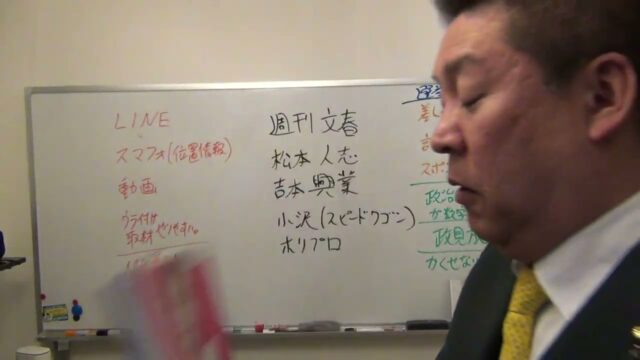 LINE
スマフォ(位置情報)
動画
ウライ付け
取材やりやすい。
週刊文春
松本人志
吉本興業
小沢(スピードワゴン)
ホリプロ
差し
スポ
政治
が数
政見放
かくせな